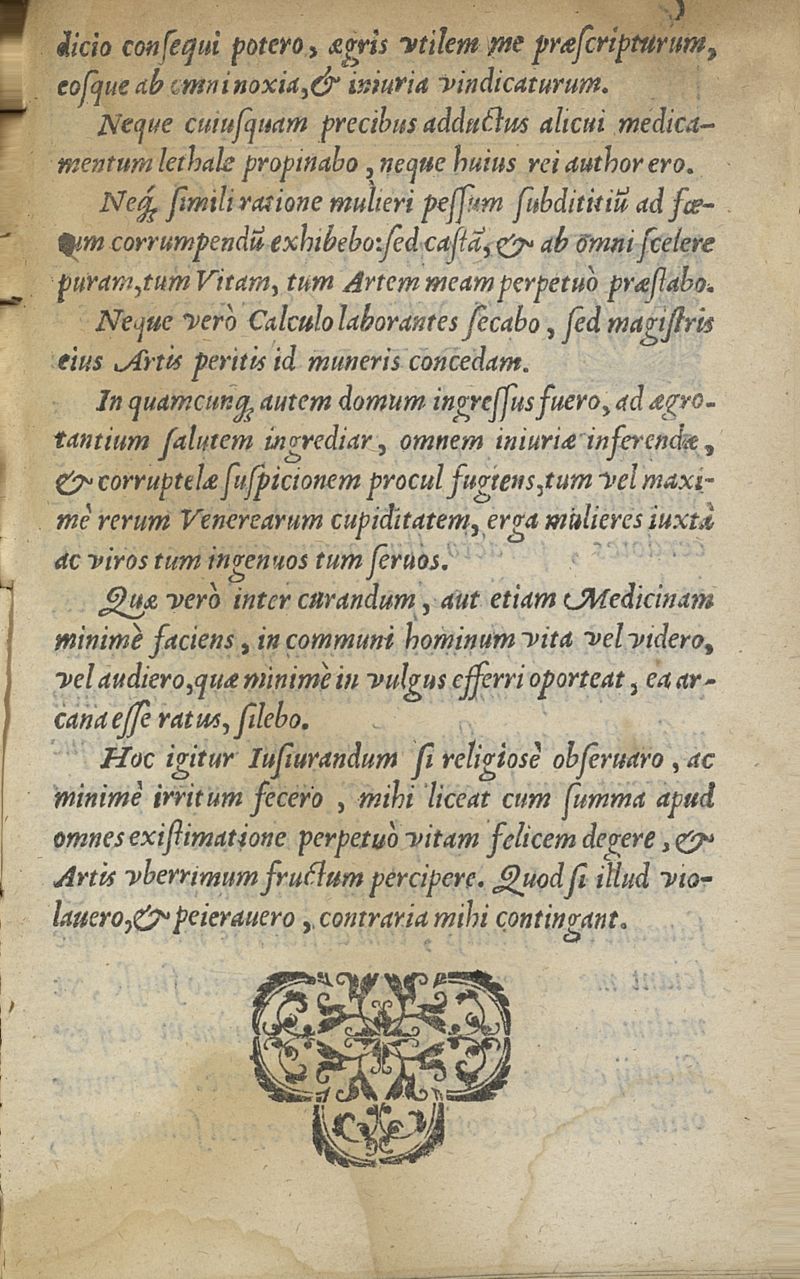 dicio conſequi potero, ægris vtilem me præſcripturum,
eoſque ab omni noxia, & iniuria vindicaturum.
Neque cuiuſquam precibus adductus alicui medica-
mentum lethale propinabo, neque huius rei author ero.
Neq́; ſimili ratione mulieri peſſum ſubdititiũ ad fœ-
tum corrumpendũ exhibebo: ſed caſtã, & ab omni ſcelere
puram, tum Vitam, tum Artem meam perpetuò præſtabo.
Neque verò Calculo laborantes ſecabo, ſed magiſtris
eius Artis peritis id muneris concedam.
In quamcunq; autem domum ingreſſus fuero, ad ægro-
tantium ſalutem ingrediar, omnem iniuriæ inferendæ,
& corruptelæ ſuſpicionem procul fugiens, tum vel maxi-
mè rerum Venerearum cupiditatem, erga mulieres iuxtà
ac viros tum ingenuos tum ſeruos.
Quæ verò inter curandum, aut etiam Medicinam
minimè faciens, in communi hominum vita vel videro,
vel audiero, quæ minimè in vulgus efferri oporteat, ea ar-
cana eſſe ratus, ſilebo.
Hoc igitur Iuſiurandum ſi religiosè obſeruaro, ac
minimè irritum fecero, mihi liceat cum ſumma apud
omnes exiſtimatione perpetuò vitam felicem degere, &
Artis vberrimum fructum percipere. Quod ſi illud vio-
lauero, & peierauero, contraria mihi contingant.